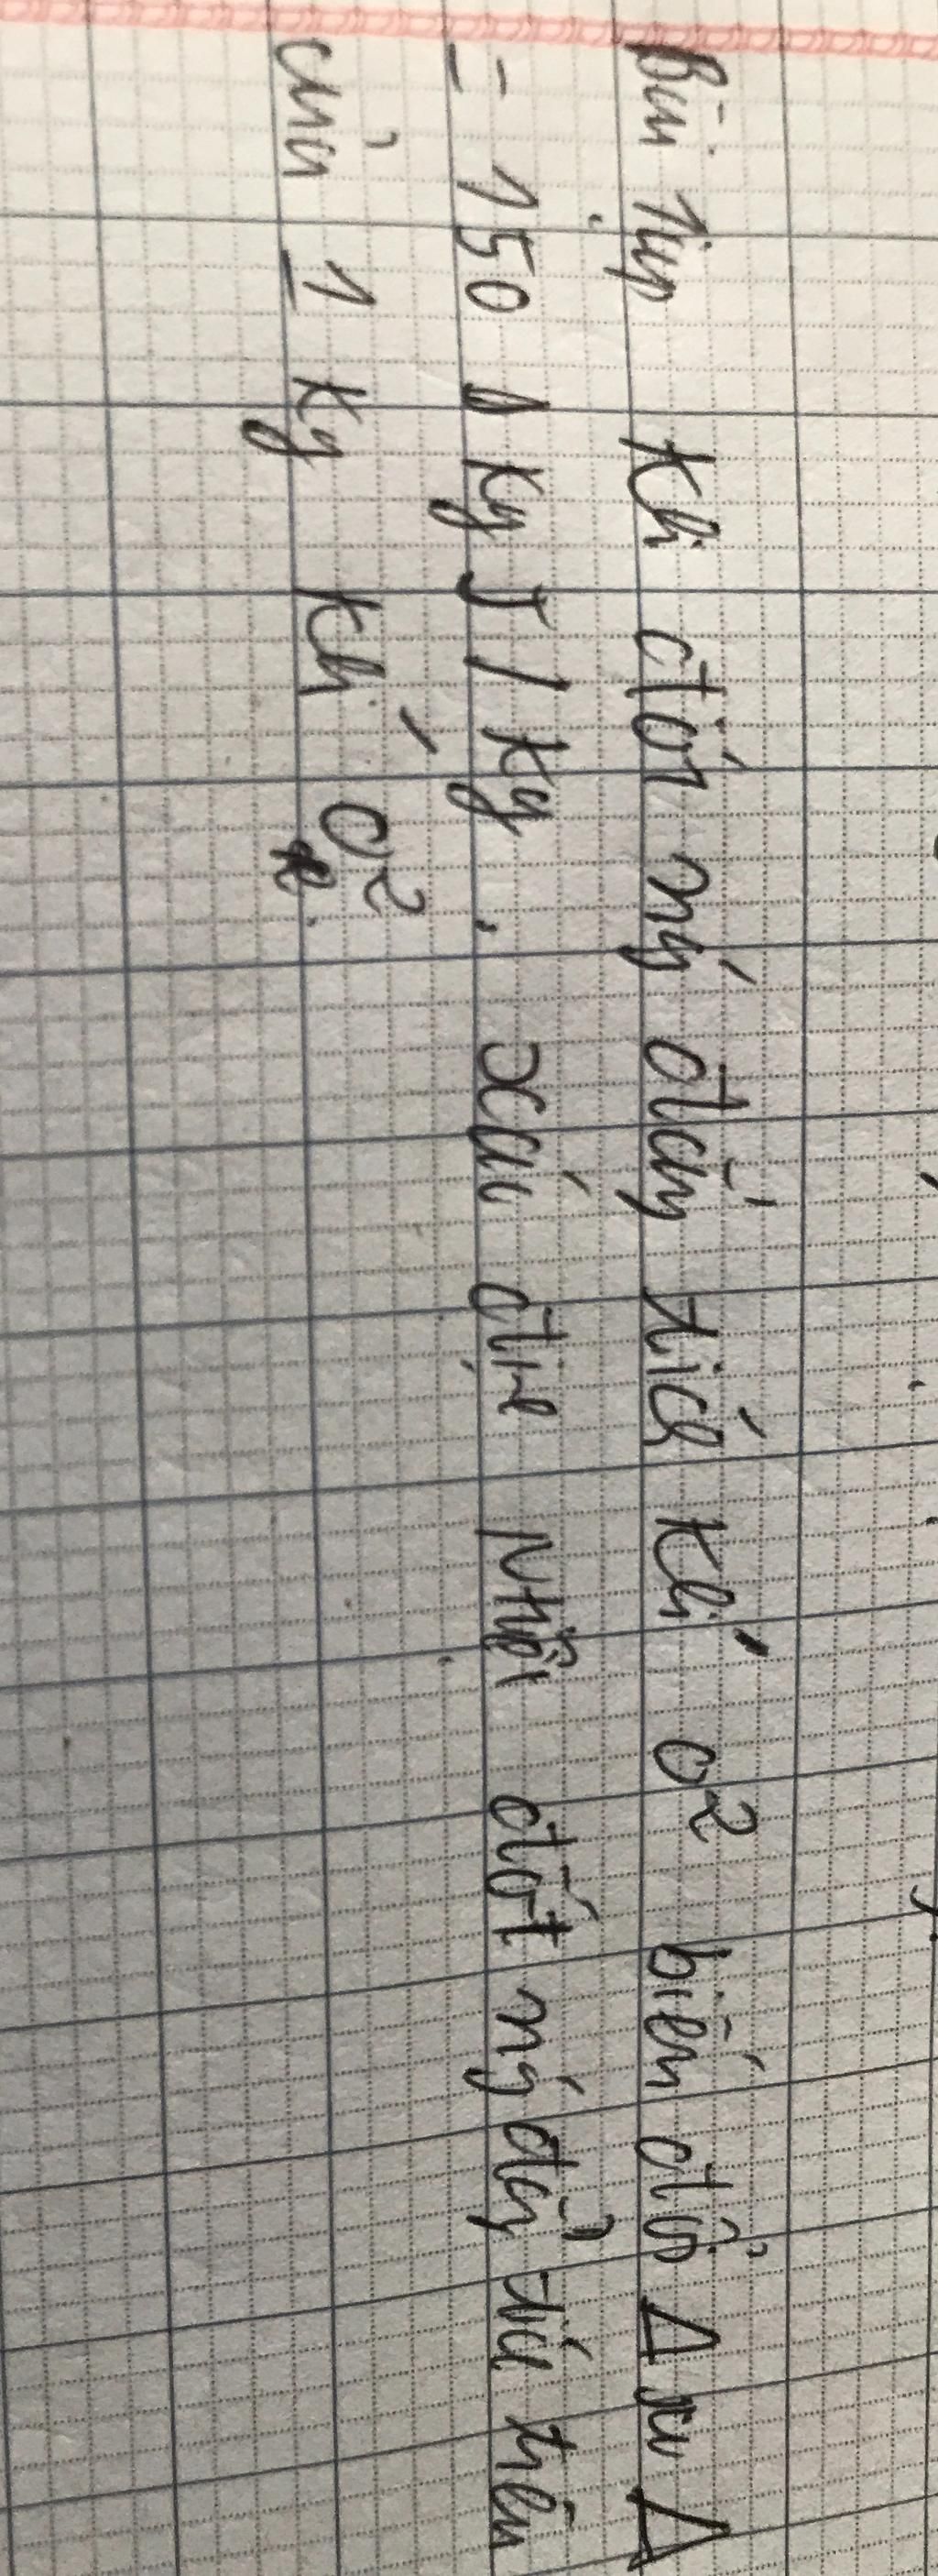 Bài tập Khí đốt ng' đẳng tích khí O2 biến đổi Δu Δ
= 150 kg J / kg . xác định Nhiệt đốt ng' đẳng tích trên
của 1 kg khí O2